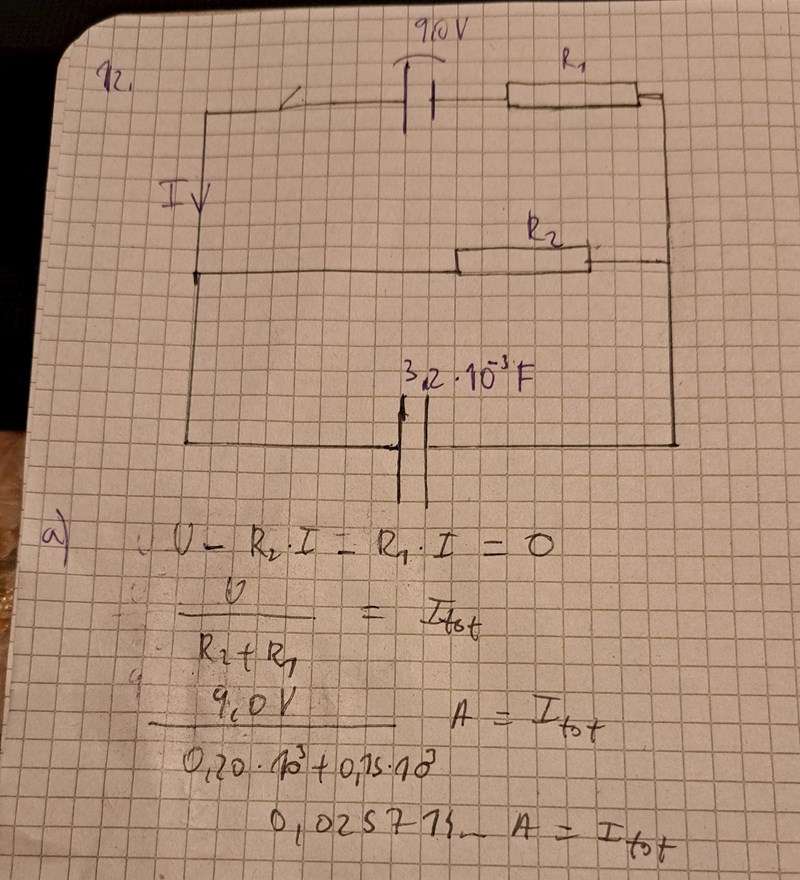 12.
9,0 V
R₁
I
R₂
3,2 · 10⁻³ F
a)
U - R₂ · I - R₁ · I = 0
U / (R₂ + R₁) = I_tot
9,0 V / (0,20 · 10³ + 0,15 · 10³) A = I_tot
0,025714... A = I_tot